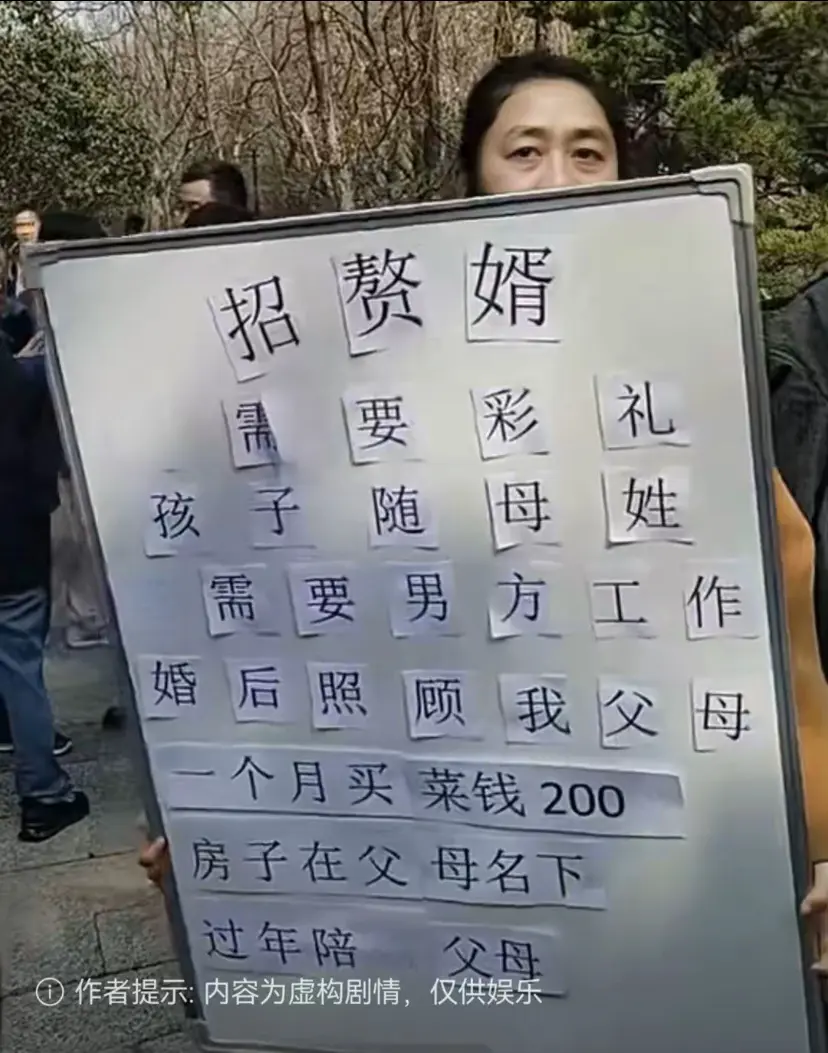 招赘婿
需要彩礼
孩子随母姓
需要男方工作
婚后照顾我父母
一个月买菜钱200
房子在父母名下
过年陪父母
作者提示: 内容为虚构剧情，仅供娱乐